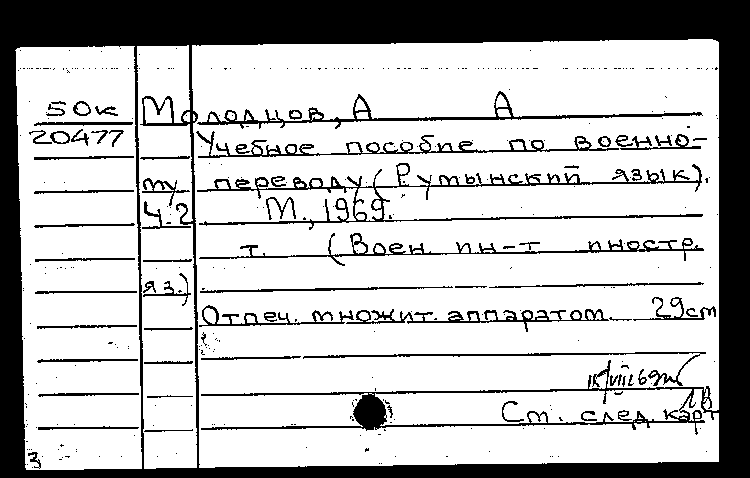 50к Молодцов, А А
20477 Учебное пособие по военно-
му переводу (Румынский язык).
Ч.2 М., 1969.
т. (Воен. ин-т иностр.
яз.)
Отпеч. множит. аппаратом. 29см
См. след. карт
3